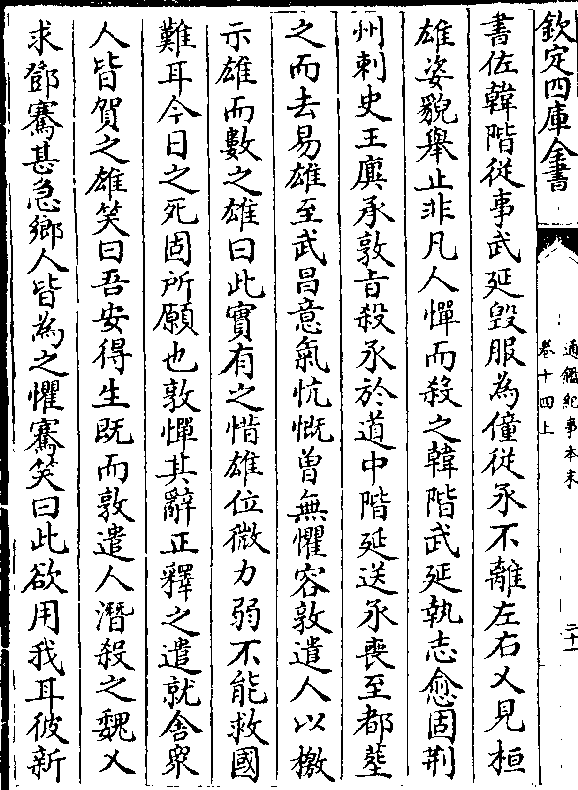 欽定四庫全書
通鑑紀事本末
卷十四上
二十一
書佐韓階從事武延毀服為僮從氶不離左右乂見桓
雄姿貌舉止非凡人憚而殺之韓階武延執志愈固荆
州刺史王廙承敦㫖殺氶於道中階延送氶喪至都塟
之而去易雄至武昌意氣忼慨曽無懼容敦遣人以檄
示雄而數之雄曰此實有之惜雄位微力弱不能救國
難耳今日之死固所願也敦憚其辭正釋之遣就舍衆
人皆賀之雄笑曰吾安得生既而敦遣人潛殺之魏乂
求鄧騫甚急鄉人皆為之懼騫笑曰此欲用我耳彼新